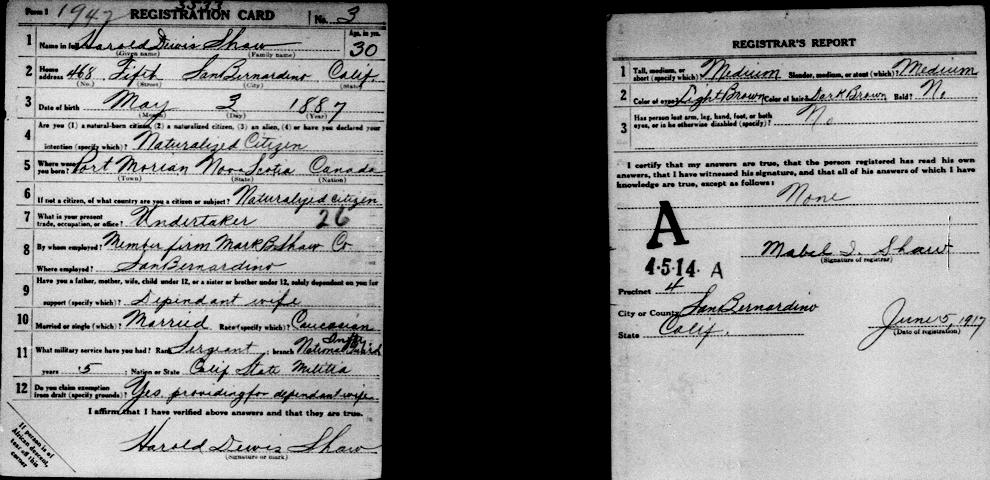 Form 1 1947 3593 REGISTRATION CARD No. 3
1 Name in full Harold Dewis Shaw Age, in yrs. 30
(Given name) (Family name)
2 Home address 468 Fifth San Bernardino Calif
(No.) (Street) (City) (State)
3 Date of birth May 3 1887
(Month) (Day) (Year)
4 Are you (1) a natural-born citizen, (2) a naturalized citizen, (3) an alien, (4) or have you declared your
intention (specify which)? Naturalized Citizen
5 Where were you born? Port Morian Nova Scotia Canada
(Town) (State) (Nation)
6 If not a citizen, of what country are you a citizen or subject? Naturalized citizen
7 What is your present trade, occupation, or office? Undertaker 26
8 By whom employed? Member firm Mark B. Shaw Co
Where employed? San Bernardino
9 Have you a father, mother, wife, child under 12, or a sister or brother under 12, solely dependent on you for
support (specify which)? Dependant wife
10 Married or single (which)? Married Race (specify which)? Caucasian
11 What military service have you had? Rank Sergeant ; branch National Guard Inftry
years 5 ; Nation or State Calif State Militia
12 Do you claim exemption from draft (specify grounds)? Yes. providing for dependant wife
I affirm that I have verified above answers and that they are true.
Harold Dewis Shaw
(Signature or mark)
If person is of
African descent,
tear off this
corner
REGISTRAR'S REPORT
1 Tall, medium, or short (specify which)? Medium Slender, medium, or stout (which)? Medium
2 Color of eyes? Light Brown Color of hair? Dark Brown Bald? No
3 Has person lost arm, leg, hand, foot, or both
eyes, or is he otherwise disabled (specify)? No
I certify that my answers are true, that the person registered has read his own
answers, that I have witnessed his signature, and that all of his answers of which I have
knowledge are true, except as follows:
None
A
4·5·14· A
Mabel I. Shaw
(Signature of registrar)
Precinct 4
City or County San Bernardino
State Calif. June 5, 1917
(Date of registration)